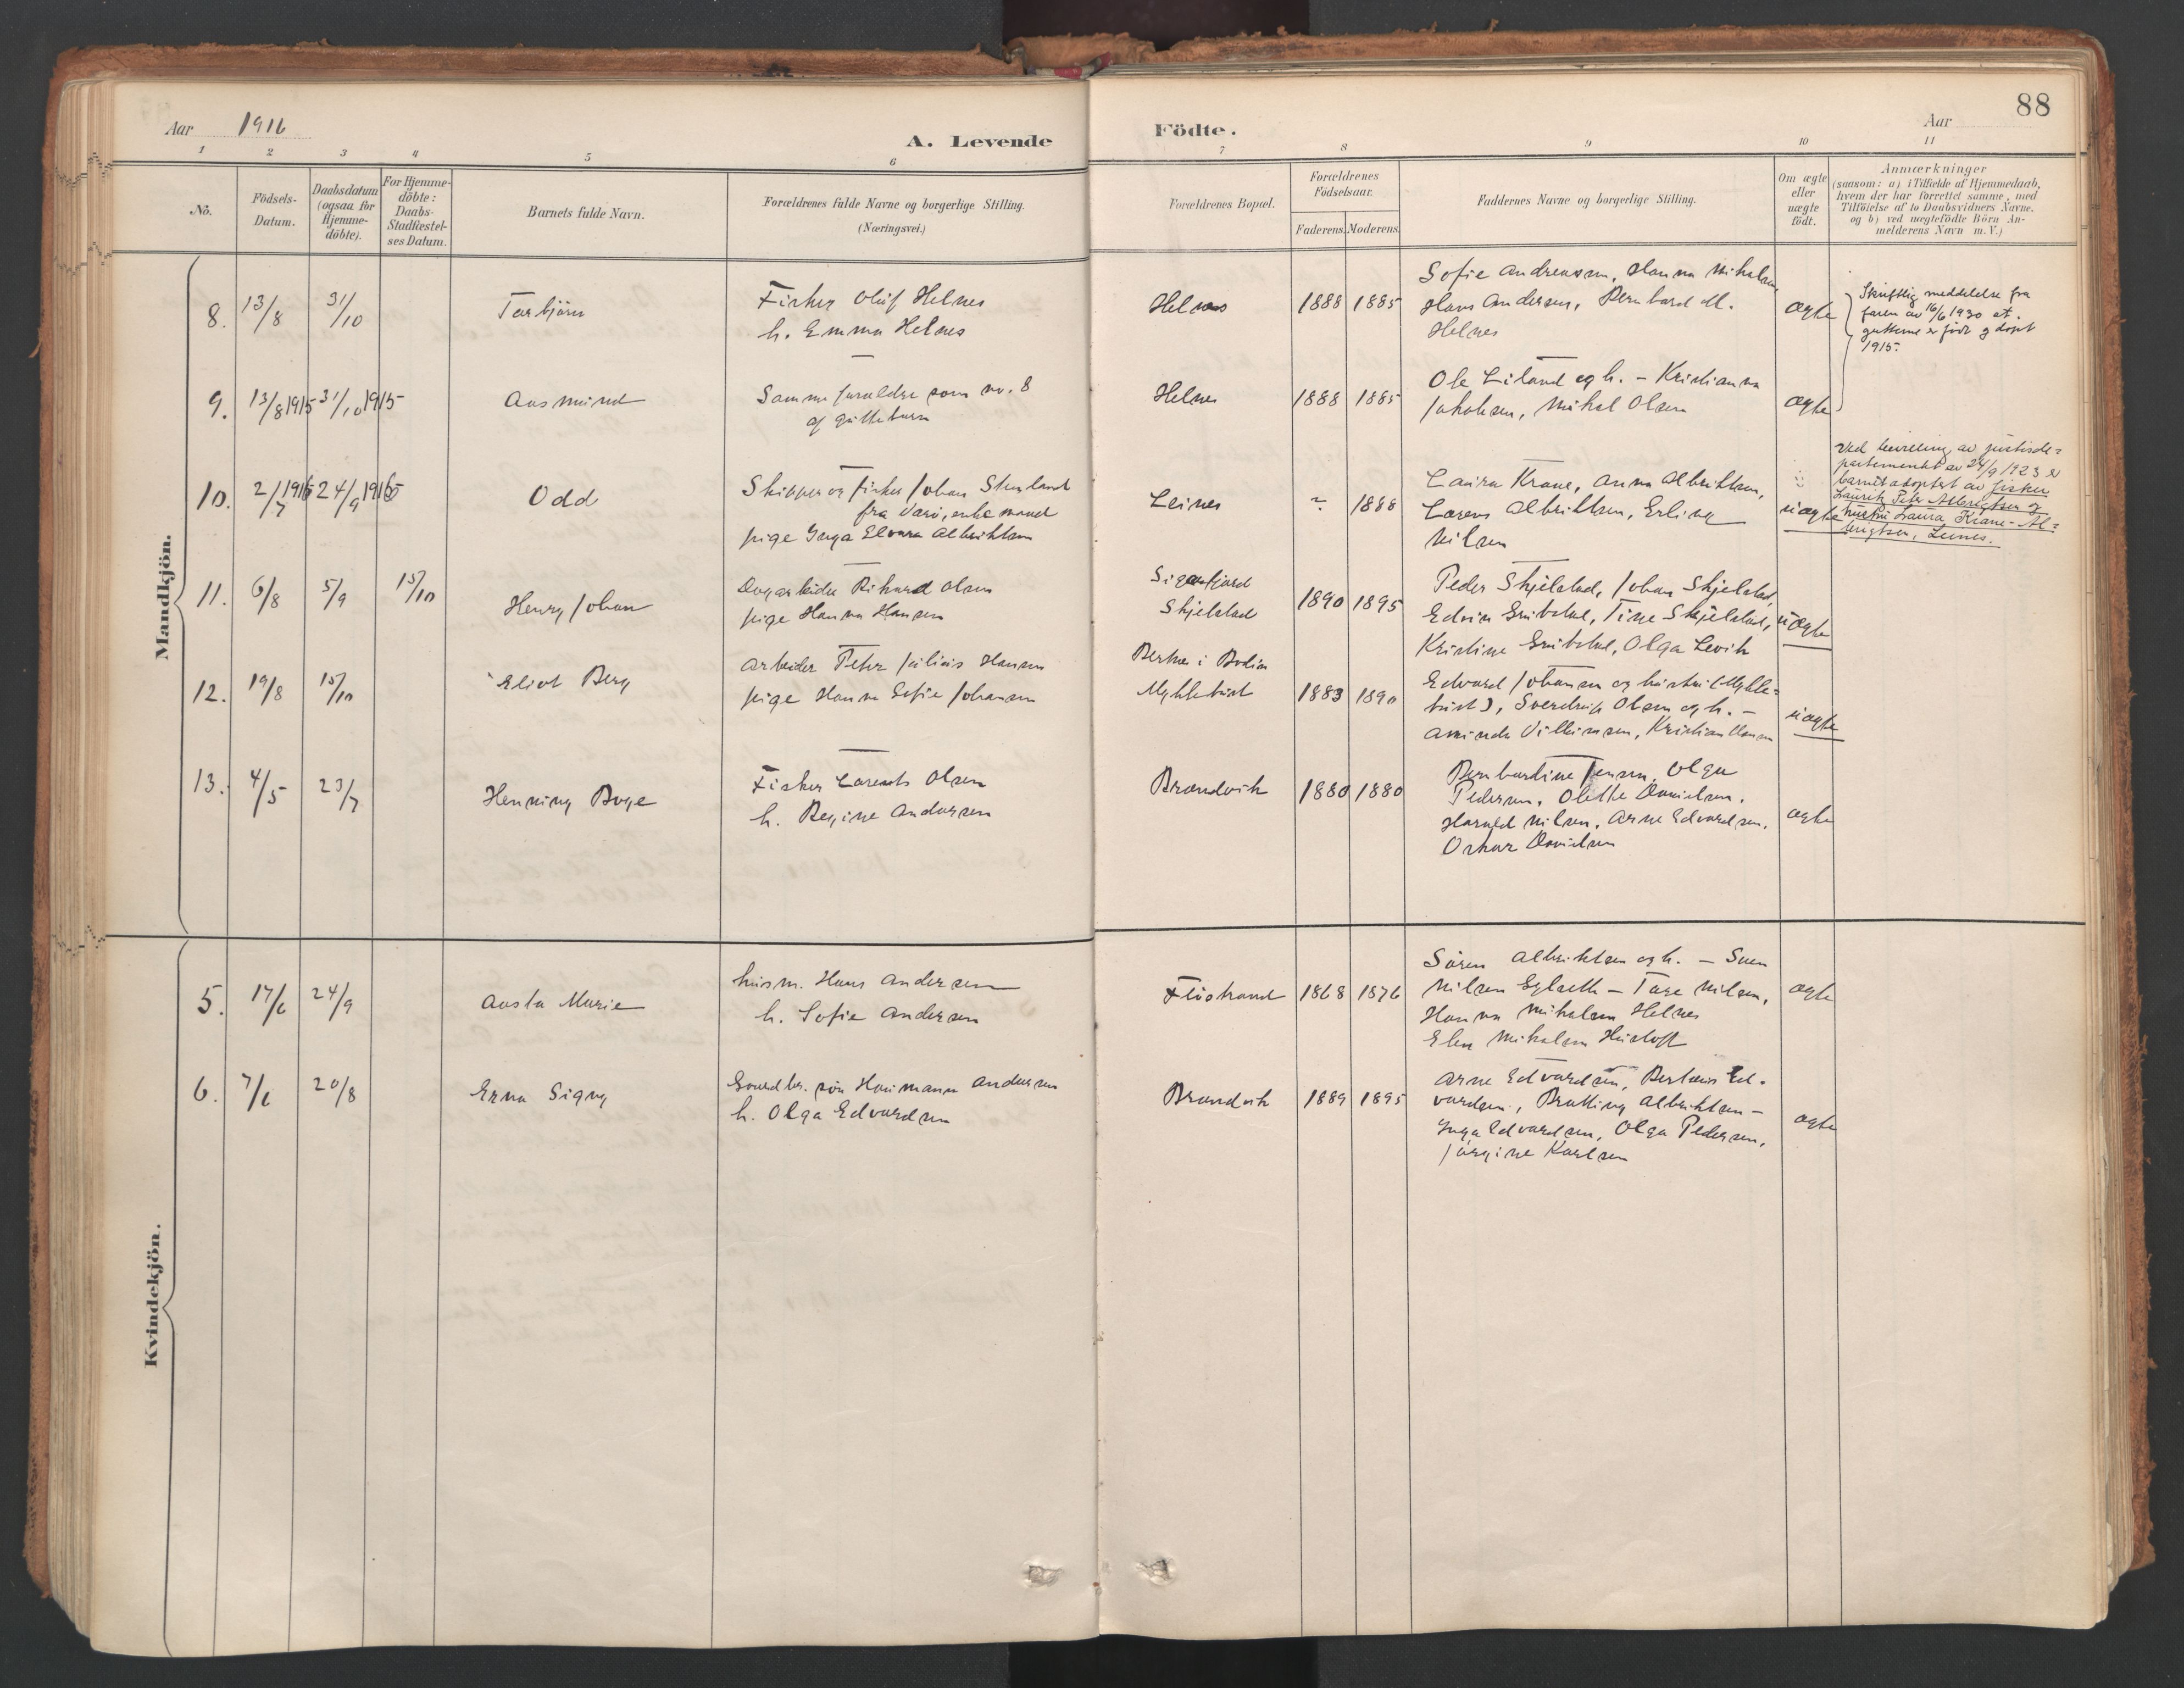 88
Aar 1916
A. Levende
Födte.
Aar
1 2 3 4 5 6 7 8 9 10 11
No.
Födsels-
Datum.
Daabsdatum
(ogsaa for
Hjemme-
döbte).
For Hjemme-
döbte:
Daabs-
Stadfæstel-
ses Datum.
Barnets fulde Navn.
Forældrenes fulde Navne og borgerlige Stilling.
(Næringsvei.)
Forældrenes Bopæl.
Forældrenes
Födselsaar.
Faderens. Moderens.
Faddernes Navne og borgerlige Stilling.
Om ægte
eller
uægte
födt.
Anmærkninger
(saasom: a) i Tilfælde af Hjemmedaab,
hvem der har forrettet samme, med
Tilföielse af to Daabsvidners Navne.
og b) ved uægtefödte Börn An-
melderens Navn m. V.)
Mandkjön.
8. 13/8 31/10 Torbjörn
Fisker Oluf Helnes
h. Emma Helnes
Helnes 1888 1885
Sofie Andreassen, Hanna Mikalsen
Hans Andersen, Bernhard M.
Helnes
ægte
Skriftlig meddelelse fra
faren av 16/6 1930 at
guttene er född og döpt
1915.
9. 13/8 1915 31/10 1915 Aasmund
Samme foreldre som no. 8
af guttebarn
Helnes 1888 1885
Ole Liland og h. - Kristianna
Jakobsen, Mikal Olsen
ægte
10. 2/7 1916 24/9 1916 Odd
Skipper og fisker Johan Stenland
fra Værö, enkemand
pige Inga Elvara Albriktsen
Leines ? 1888
Laura Krane, Anna Albriktsen,
Lorens Albriktsen, Erling
Nilsen
uægte
Ved bevilling av justisde=
partementet av 24/9 1923 er
barnet adoptert av fisker
Laurits Peter Albrigtsen og
hustru Laura Krane-Al=
brigtsen, Leines.
11. 6/8 5/9 15/10 Henry Johan
Dagarbeider Rikard Olsen
pige Hanna Hansen
Sigerfjord
Skjelstad
1890 1895
Peder Skjelstad, Johan Skjelstad,
Edvin, Tine Skjelstad,
Kristine, Olga Levik
uægte
12. 19/8 15/10 Eliot Berg
Arbeider Peter Julius Hansen
pige Hanna Sofie Johansen
i Bodin
Myklebust
1883 1890
Edvard Johansen og hustru (Mykle=
bust), Sverdrup Olsen og h. -
Aminda Vilhimsen, Kristian Hansen
uægte
13. 4/5 23/7 Henning Boye
Fisker Lorents Olsen
h. Regine Andersen
Brandvik 1880 1880
Bernhardine Jensen, Olga
Pedersen, Olette Danielsen,
Harald Nilsen, Arne Edvardsen,
Oskar Danielsen
ægte
Kvindekjön.
5. 17/6 24/9 Aasta Marie
husm. Hans Andersen
h. Sofie Andersen
Flostrand 1868 1876
Sören Albriktsen og h. - Sven
Nilsen - Tore Nilsen,
Hanna Mikalsen Helnes
Elen Mikalsen
ægte
6. 7/6 20/8 Erna Signy
Gaardbr. sön Haumann Andersen
h. Olga Edvardsen
Brandvik 1889 1895
Arne Edvardsen, Ed-
vardsen, Albriktsen -
Inga Edvardsen, Olga Pedersen,
Jörgine Karlsen
ægte